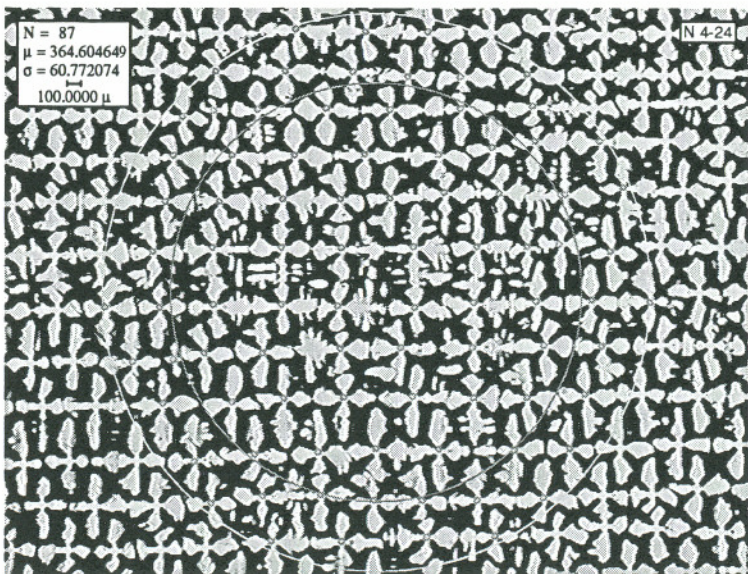 N = 87
μ = 364.604649
σ = 60.772074
100.0000 μ
N 4-24